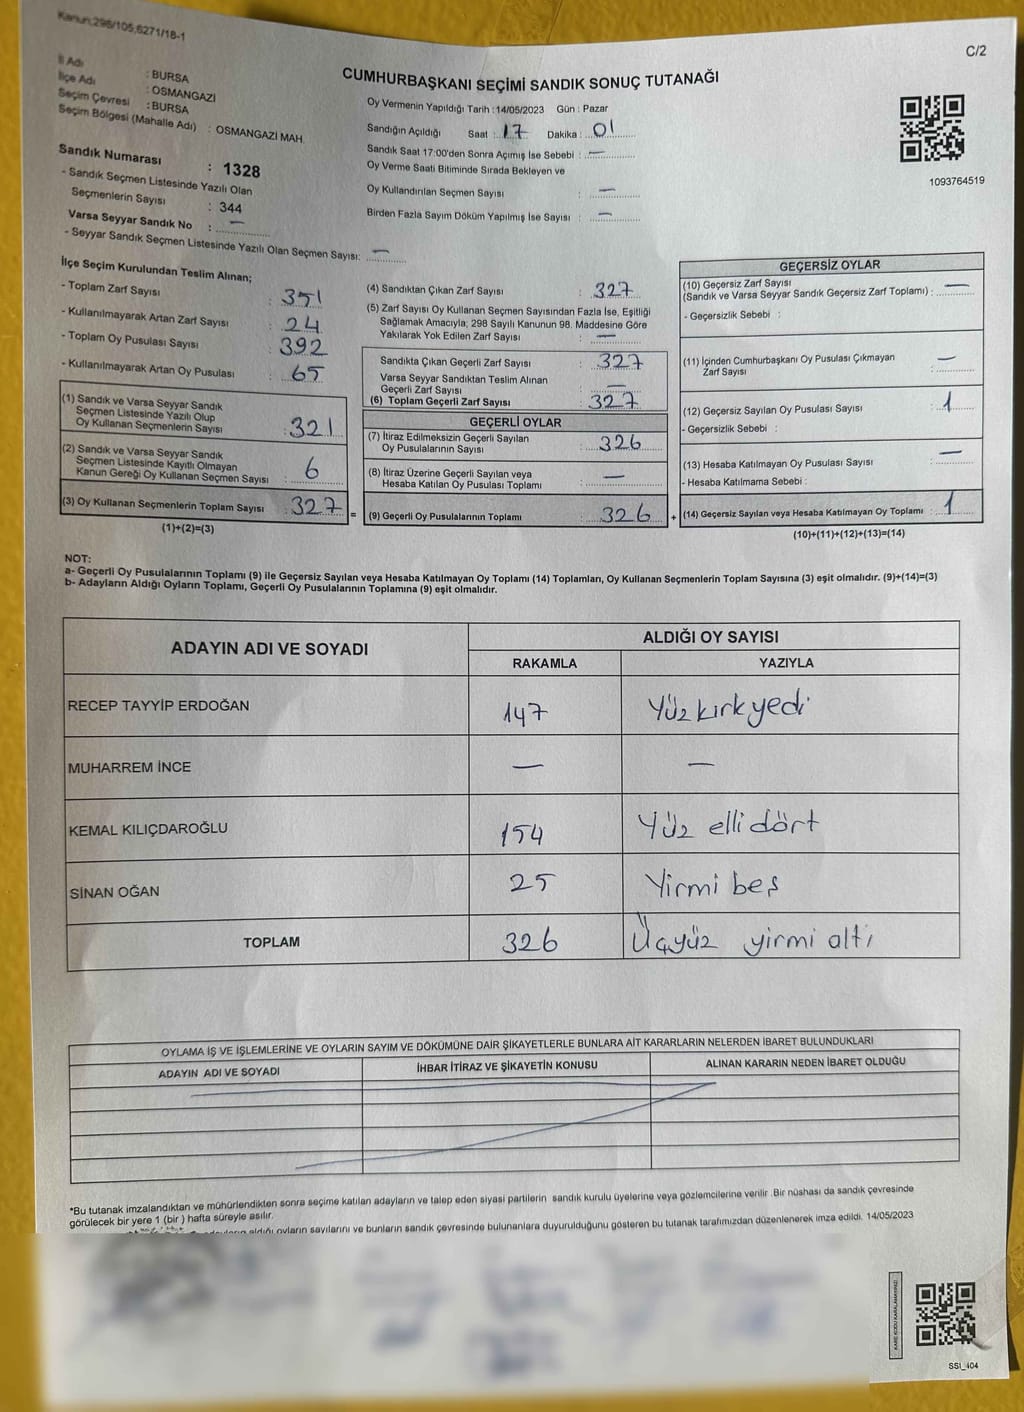 Kanun;298/105,6271/18-1
C/2
İl Adı : BURSA
İlçe Adı : OSMANGAZİ
Seçim Çevresi : BURSA
Seçim Bölgesi (Mahalle Adı) : OSMANGAZİ MAH.
Sandık Numarası : 1328
- Sandık Seçmen Listesinde Yazılı Olan
Seçmenlerin Sayısı : 344
Varsa Seyyar Sandık No : —
- Seyyar Sandık Seçmen Listesinde Yazılı Olan Seçmen Sayısı: —
CUMHURBAŞKANI SEÇİMİ SANDIK SONUÇ TUTANAĞI
Oy Vermenin Yapıldığı Tarih : 14/05/2023 Gün : Pazar
Sandığın Açıldığı Saat : 17 Dakika : 01
Sandık Saat 17:00'den Sonra Açımış İse Sebebi : —
Oy Verme Saati Bitiminde Sırada Bekleyen ve
Oy Kullandırılan Seçmen Sayısı : —
Birden Fazla Sayım Döküm Yapılmış İse Sayısı : —
1093764519
İlçe Seçim Kurulundan Teslim Alınan;
- Toplam Zarf Sayısı : 351
- Kullanılmayarak Artan Zarf Sayısı : 24
- Toplam Oy Pusulası Sayısı : 392
- Kullanılmayarak Artan Oy Pusulası : 65
(1) Sandık ve Varsa Seyyar Sandık
Seçmen Listesinde Yazılı Olup
Oy Kullanan Seçmenlerin Sayısı : 321
(2) Sandık ve Varsa Seyyar Sandık
Seçmen Listesinde Kayıtlı Olmayan
Kanun Gereği Oy Kullanan Seçmen Sayısı : 6
(3) Oy Kullanan Seçmenlerin Toplam Sayısı : 327
(1)+(2)=(3)
(4) Sandıktan Çıkan Zarf Sayısı : 327
(5) Zarf Sayısı Oy Kullanan Seçmen Sayısından Fazla İse, Eşitliği
Sağlamak Amacıyla; 298 Sayılı Kanunun 98. Maddesine Göre
Yakılarak Yok Edilen Zarf Sayısı : —
Sandıkta Çıkan Geçerli Zarf Sayısı : 327
Varsa Seyyar Sandıktan Teslim Alınan
Geçerli Zarf Sayısı : —
(6) Toplam Geçerli Zarf Sayısı : 327
GEÇERLİ OYLAR
(7) İtiraz Edilmeksizin Geçerli Sayılan
Oy Pusulalarının Sayısı : 326
(8) İtiraz Üzerine Geçerli Sayılan veya
Hesaba Katılan Oy Pusulası Toplamı : —
= (9) Geçerli Oy Pusulalarının Toplamı : 326
GEÇERSİZ OYLAR
(10) Geçersiz Zarf Sayısı
(Sandık ve Varsa Seyyar Sandık Geçersiz Zarf Toplamı) : —
- Geçersizlik Sebebi :
(11) İçinden Cumhurbaşkanı Oy Pusulası Çıkmayan
Zarf Sayısı : —
(12) Geçersiz Sayılan Oy Pusulası Sayısı : 1
- Geçersizlik Sebebi :
(13) Hesaba Katılmayan Oy Pusulası Sayısı : —
- Hesaba Katılmama Sebebi :
+ (14) Geçersiz Sayılan veya Hesaba Katılmayan Oy Toplamı : 1
(10)+(11)+(12)+(13)=(14)
NOT:
a- Geçerli Oy Pusulalarının Toplamı (9) ile Geçersiz Sayılan veya Hesaba Katılmayan Oy Toplamı (14) Toplamları, Oy Kullanan Seçmenlerin Toplam Sayısına (3) eşit olmalıdır. (9)+(14)=(3)
b- Adayların Aldığı Oyların Toplamı, Geçerli Oy Pusulalarının Toplamına (9) eşit olmalıdır.
ADAYIN ADI VE SOYADI ALDIĞI OY SAYISI
RAKAMLA YAZIYLA
RECEP TAYYİP ERDOĞAN 147 Yüz kırk yedi
MUHARREM İNCE — —
KEMAL KILIÇDAROĞLU 154 Yüz elli dört
SİNAN OĞAN 25 Yirmi beş
TOPLAM 326 Üçyüz yirmi altı
OYLAMA İŞ VE İŞLEMLERİNE VE OYLARIN SAYIM VE DÖKÜMÜNE DAİR ŞİKAYETLERLE BUNLARA AİT KARARLARIN NELERDEN İBARET BULUNDUKLARI
ADAYIN ADI VE SOYADI İHBAR İTİRAZ VE ŞİKAYETİN KONUSU ALINAN KARARIN NEDEN İBARET OLDUĞU
*Bu tutanak imzalandıktan ve mühürlendikten sonra seçime katılan adayların ve talep eden siyasi partilerin sandık kurulu üyelerine veya gözlemcilerine verilir .Bir nüshası da sandık çevresinde
görülecek bir yere 1 (bir ) hafta süreyle asılır.
aldığı oyların sayılarını ve bunların sandık çevresinde bulunanlara duyurulduğunu gösteren bu tutanak tarafımızdan düzenlenerek imza edildi. 14/05/2023
SSI_404